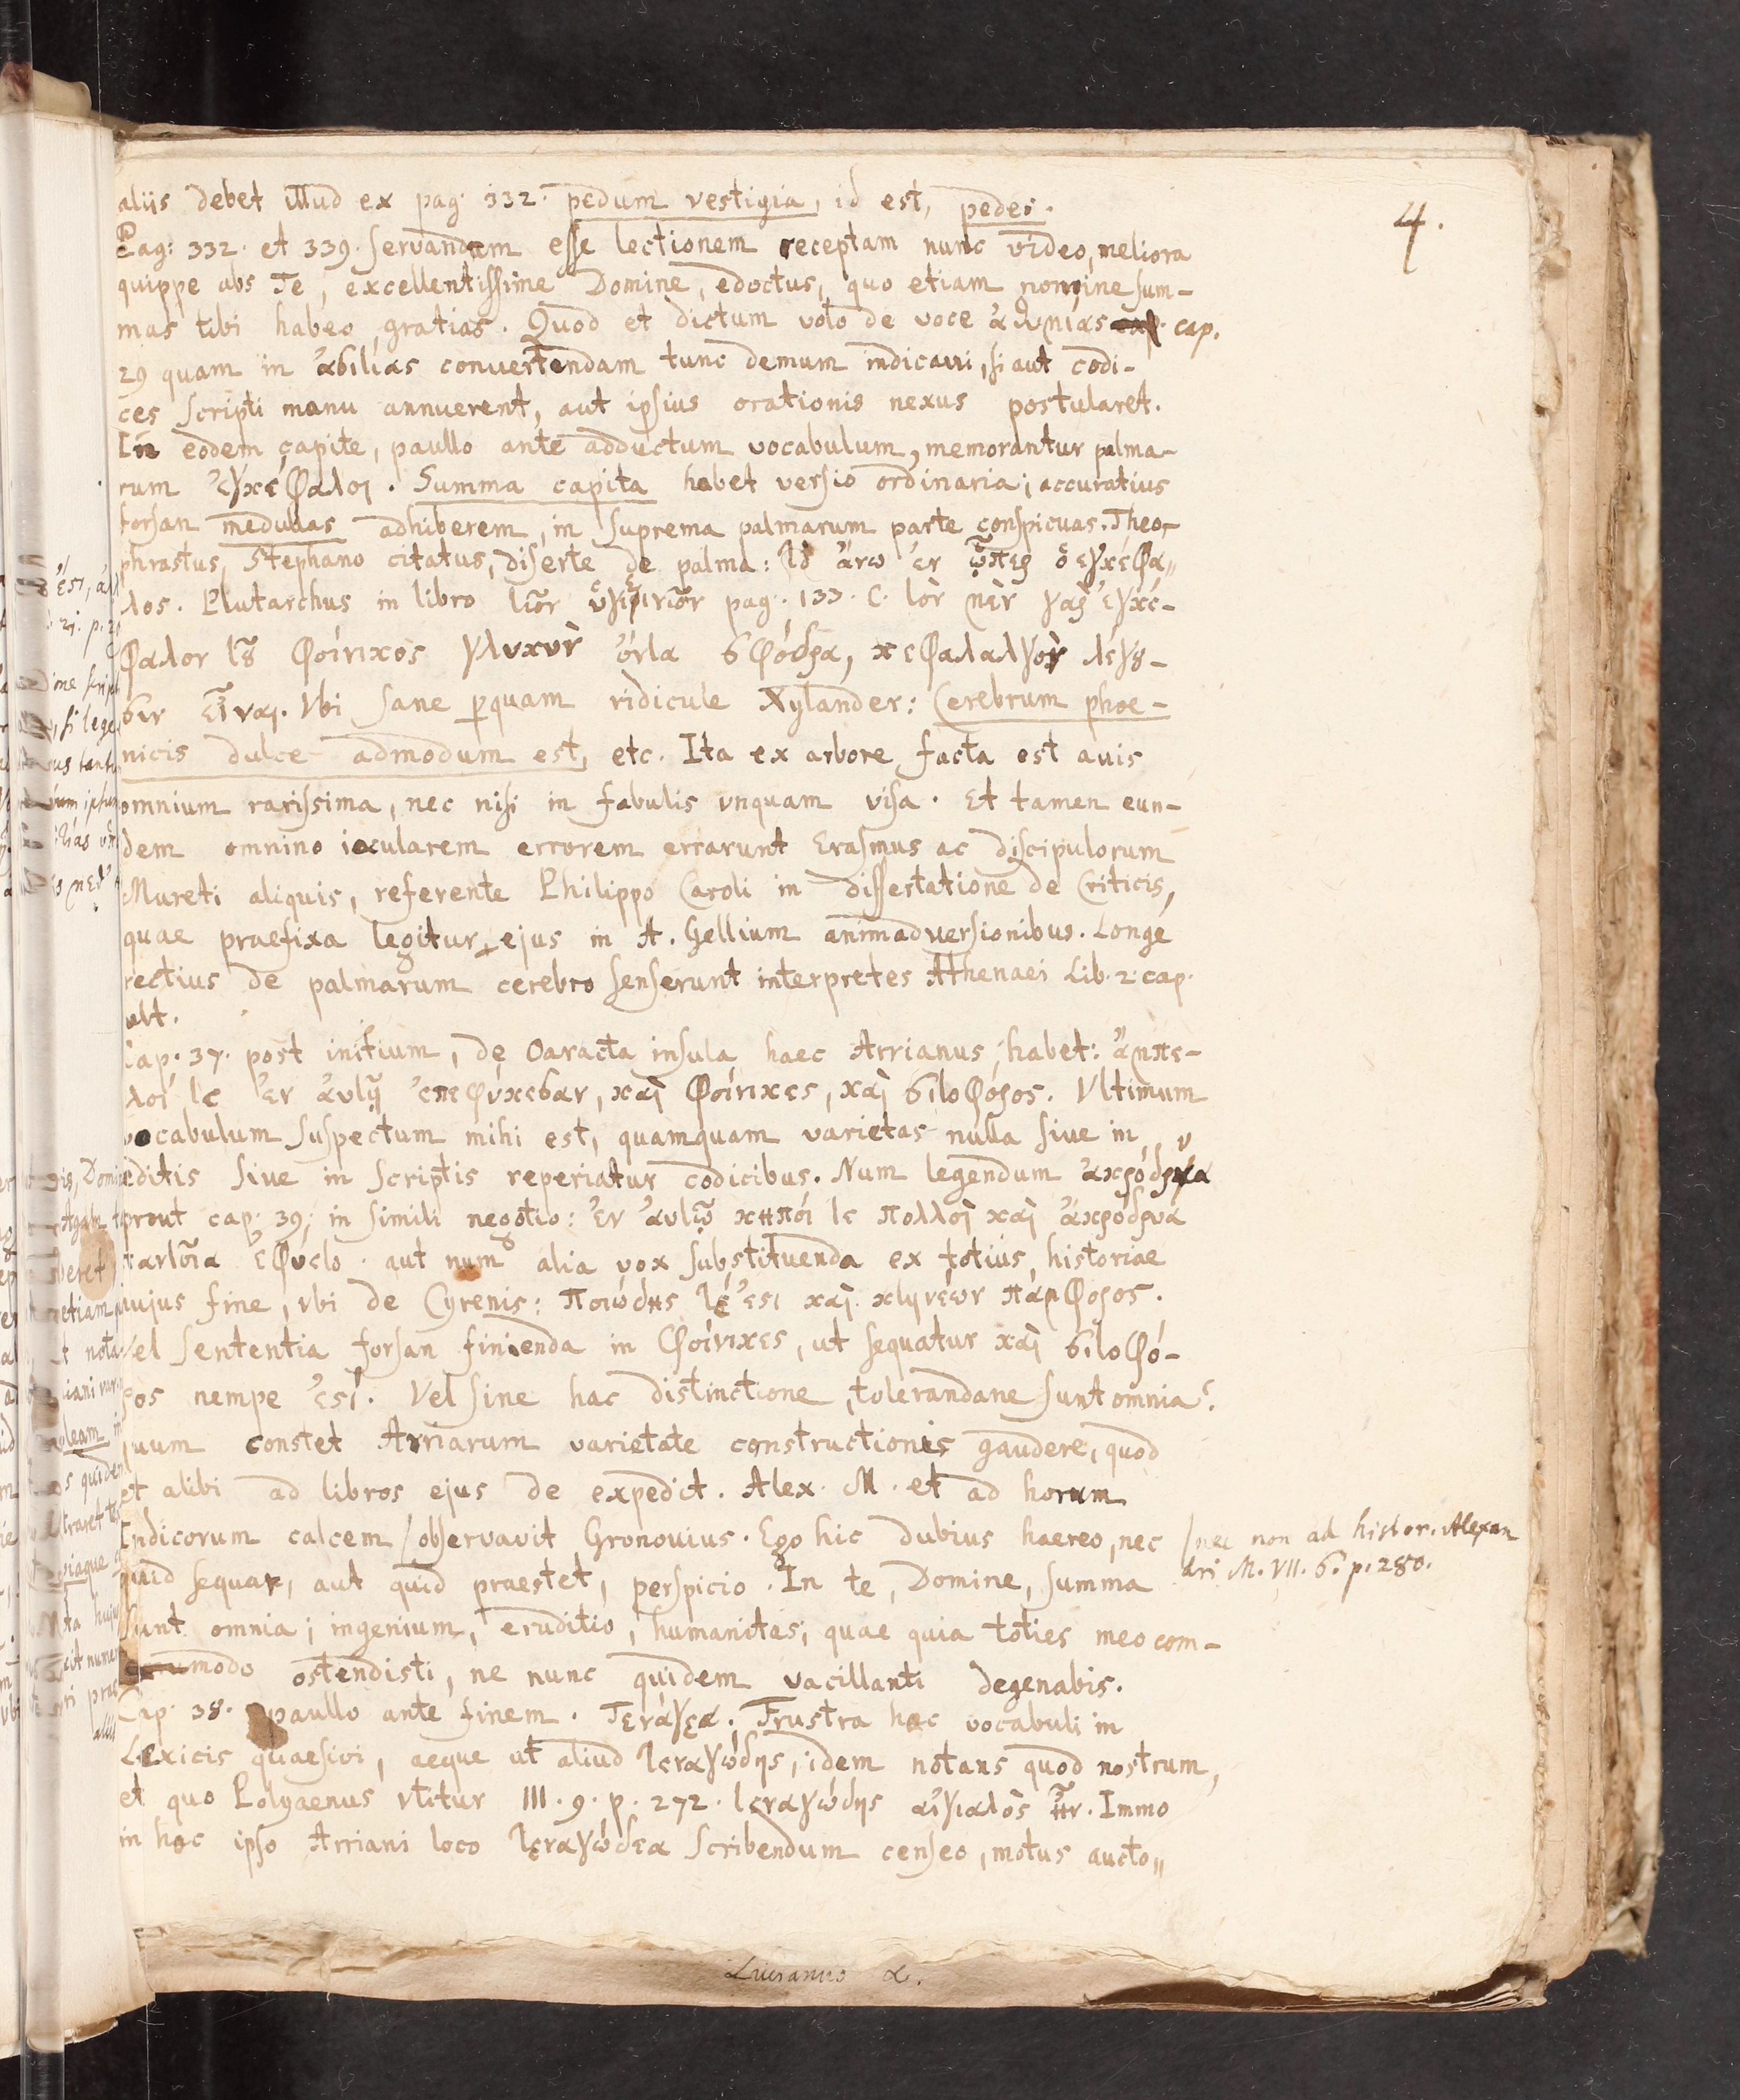 4.
aliis debet illud ex pag. 332. pedum vestigia, id est, pedes.
Pag: 332. et 339. servandam esse lectionem receptam nunc video, meliora
quippe abs Te, excellentissime Domine, edoctus, quo etiam nomine sum-
mas tibi habeo gratias. Quod et dictum volo de voce cap.
29 quam in ἀσιτίας convertendam tunc demum indicavi, si aut codi-
ces scripti manu annuerent, aut ipsius orationis nexus postularet.
In eodem capite, paullo ante adductum vocabulum, memorantur palma-
rum ἐγκέφαλοι. Summa capita habet versio ordinaria; accuratius
forsan medullas adhiberem, in suprema palmarum parte conspicuas. Theo-
phrastus, Stephano citatus, diserte de palma: τὸ ἄνω ἐν ᾧπερ ὁ ἐγκέφα-
λος. Plutarchus in libro τῶν ὑγιεινῶν pag. 133. C. τὸν μὲν γὰρ ἐγκέ-
φαλον τοῦ φοίνικος γλυκὺν ὄντα σφόδρα, κεφαλαλγὸν λέγου-
σιν εἶναι. Vbi sane perquam ridicule Xylander: Cerebrum phoe-
nicis dulce admodum est, etc. Ita ex arbore facta est avis
omnium rarissima, nec nisi in fabulis vnquam visa. Et tamen eun-
dem omnino iocularem errorem errarunt Erasmus ac discipulorum
Mureti aliquis, referente Philippo Caroli in dissertatione de Criticis,
quae praefixa legitur ejus in A. Gellium animadversionibus. Longe
rectius de palmarum cerebro senserunt interpretes Athenaei Lib. 2. cap.
ult.
Cap. 37. post initium, de Oaracta insula haec Arrianus habet: ἄμπε-
λοί τε ἐν αὐτῇ ἐπεφύκεσαν, καὶ φοίνικες, καὶ σιτοφόρος. Vltimum
vocabulum suspectum mihi est, quamquam varietas nulla siue in
editis siue in scriptis reperiatur codicibus. Num legendum ἀκρόδρυα
prout cap. 39. in simili negotio: ἐν αὐτῷ κῆποί τε πολλοὶ καὶ ἀκρόδρυα
παντοῖα ἐφύετο. aut num alia vox substituenda ex totius historiae
hujus fine, vbi de Cyrenis: ποιώδης τέ ἐστι καὶ κτηνέων πάμφορος.
Vel sententia forsan finienda in φοίνικες, ut sequatur καὶ σιτοφό-
ρος nempe ἐστί. Vel sine hac distinctione tolerandane sunt omnia?
quum constet Arrianum varietate constructionis gaudere, quod
et alibi ad libros ejus de expedit. Alex. M. et ad horum
Indicorum calcem / observavit Gronovius. Ego hic dubius haereo, nec
/ nec non ad histor. Alexan
dri M. VII. 6. p. 280.
quid sequar, aut quid praestet, perspicio. In te, Domine, summa
sunt omnia; ingenium, eruditio, humanitas; quae quia toties meo com-
modo ostendisti, ne nunc quidem vacillanti degenabis.
Cap. 38. paullo ante finem. Τενάγεα. Frustra hoc vocabuli in
Lexicis quaesivi, aeque ut aliud τεναγώδης, idem notans quod nostrum,
et quo Polyaenus vtitur III. 9. p. 272. τεναγώδης αἰγιαλὸς ἦν. Immo
in hoc ipso Arriani loco τεναγώδεα scribendum censeo, motus aucto-